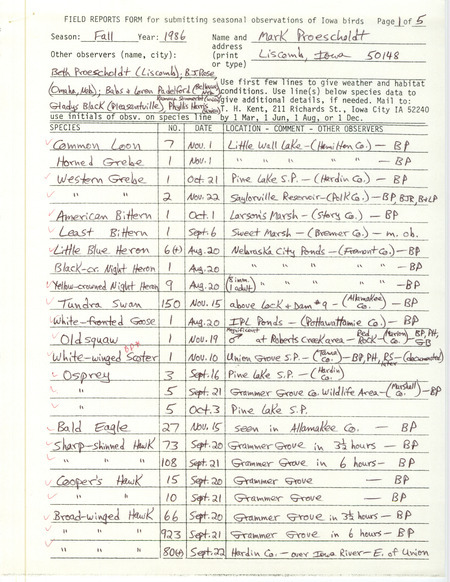 FIELD REPORTS FORM for submitting seasonal observations of Iowa birds Page 1 of 5
Season: Fall Year: 1986 Name and address (print or type) Mark Proescholdt
Liscomb, Iowa 50148
Other observers (name, city):
Beth Proescholdt (Liscomb), B.J. Rose,
(Omaha, Neb), Babs & Loren Padelford (Bellevue, Neb)
Gladys Black (Pleasantville) Phyllis Harris
Use first few lines to give weather and habitat
conditions. Use line(s) below species data to
give additional details, if needed. Mail to:
T. H. Kent, 211 Richards St., Iowa City IA 52240
use initials of obsv. on species line by 1 Mar, 1 Jun, 1 Aug, or 1 Dec.
SPECIES NO. DATE LOCATION - COMMENT - OTHER OBSERVERS
Common Loon 7 Nov. 1 Little Wall Lake - (Hamilton Co.) - BP
Horned Grebe 1 Nov. 1 " " " " " - BP
Western Grebe 1 Oct. 21 Pine Lake S.P. - (Hardin Co.) - BP
" " 2 Nov. 22 Saylorville Reservoir - (Polk Co.) - BP, BJR, B+LP
American Bittern 1 Oct. 1 Larson's Marsh - (Story Co.) - BP
Least Bittern 1 Sept. 6 Sweet Marsh - (Bremer Co.) - m. ob.
Little Blue Heron 6(+) Aug. 20 Nebraska City Ponds - (Fremont Co.) - BP
Black-cr. Night Heron 1 Aug. 20 " " " " " - BP
Yellow-crowned Night Heron 9 Aug. 20 (8 imm. 1 adult) " " " " " - BP
Tundra Swan 150 Nov. 15 above Lock + Dam #9 - (Allamakee Co.) - BP
White-fronted Goose 1 Aug. 20 IPL Ponds - (Pottawattamie Co.) - BP
Oldsquaw 1 Nov. 19 Magnificent ♂ at Roberts Creek area - Red Rock - (Marion Co.) BP, PH, GB
White-winged Scoter BP* 1 Nov. 10 Union Grove S.P. - (Tama Co.) - BP, PH, RS later (documented)
Osprey 3 Sept. 16 Pine Lake S.P. - (Hardin Co.)
" 5 Sept. 21 Grammer Grove Co. Wildlife Area - (Marshall Co.) - BP
" 5 Oct. 3 Pine Lake S.P.
Bald Eagle 27 Nov. 15 seen in Allamakee Co. - BP
Sharp-shinned Hawk 73 Sept. 20 Grammer Grove in 3½ hours - BP
" " " 108 Sept. 21 Grammer Grove in 6 hours - BP
Cooper's Hawk 15 Sept. 20 Grammer Grove - BP
" " 10 Sept. 21 Grammer Grove - BP
Broad-winged Hawk 66 Sept. 20 Grammer Grove in 3½ hours - BP
" " " 923 Sept. 21 Grammer Grove in 6 hours - BP
" " " 80(+) Sept. 22 Hardin Co. - over Iowa River - E. of Union